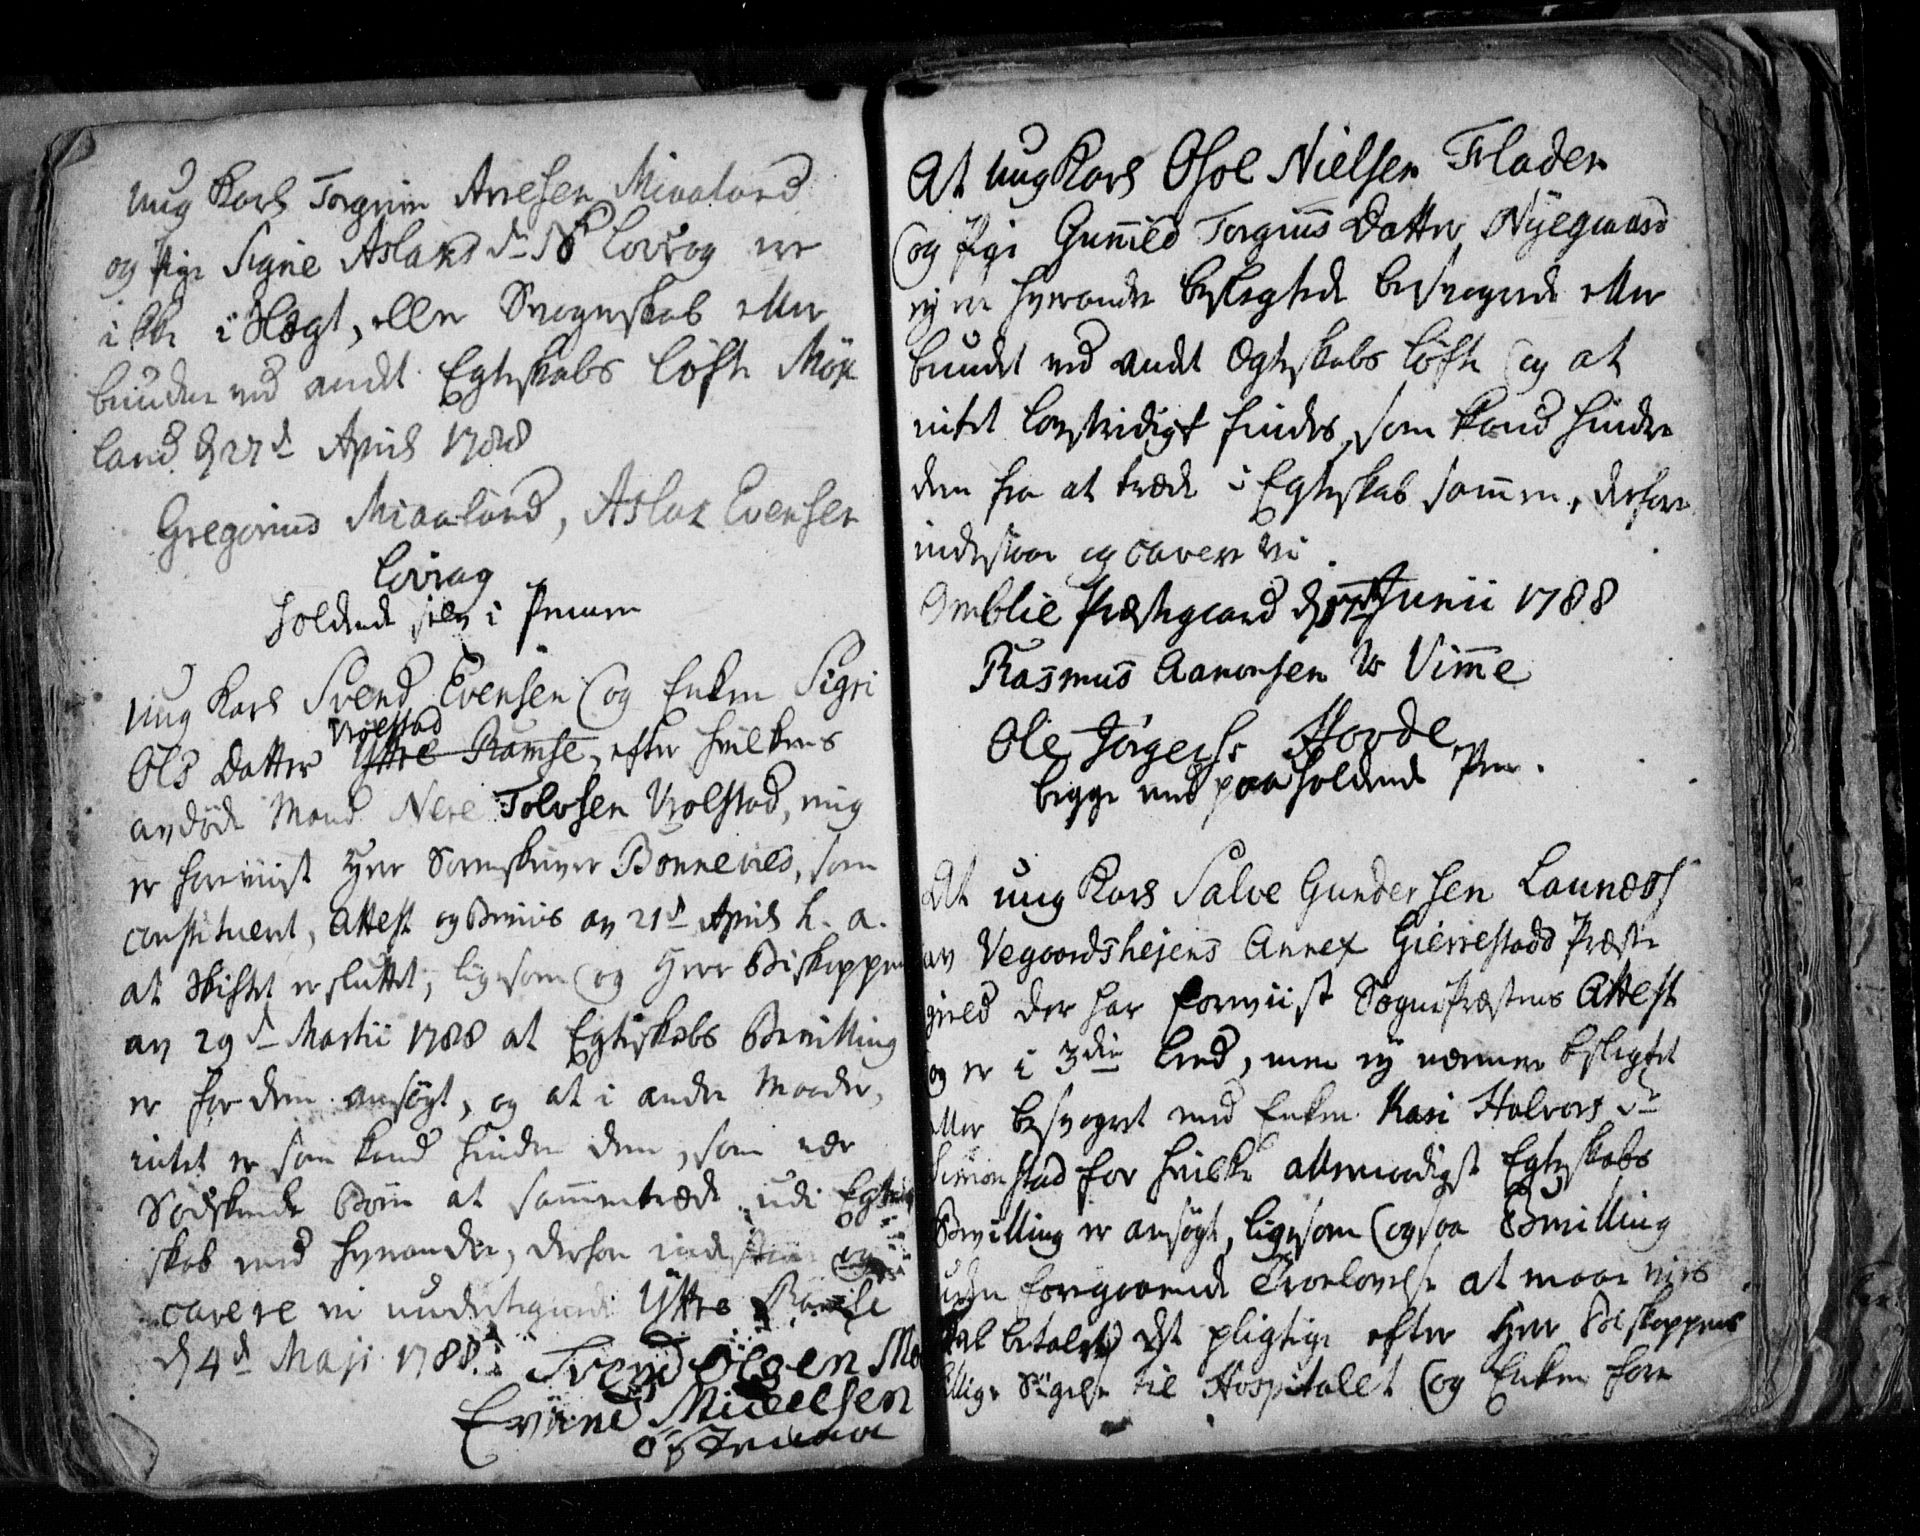 ung Karl Torgrim Aresen Miaaland
og Pige Signe Aslaks dr Lovrag er
ikke i Slægt, eller Svogerskab eller
bunden ved andet Egteskabs løfte Møk
land d 27d April 1788
Gregorius Miaaland, Aslak Evensen
Lovrag
holdende selv i Pennen
ung Karl Svend Evensen og Enken Sigri
Vrølstad
Ols Datter Yttre Ramse, efter hvilkens
avdøde Mand Nere Tolvsen Vrølstad, mig
er foreviist Herr Sorenskriver Bonnevies, som
constitueret, Attest og Beviis av 21d April h. a.
at Skiftet er sluttet, ligesom og Herr Biskoppens
av 29d Martii 1788 at Egteskabs Bevilling
er for dem ansøgt, og at i andre Maader,
intet er som kand hindre dem, som nær
Sødskende Børn at sammentræde udi Egte
skab med hverandre, derfore indestaar og
cavere vi undertegnede Yttre Ramse
d 4d Maji 1788.
Svend Olsen
Evind Michelsen
At ung Karl Osol Nielsen Flaten
og Pige Gunild Torgius Datter Nyegaard
ej ere hverandre beslegtede besvogrede eller
bundet ved andet Ægteskabs løfte og at
intet lovstridigt findes, som kand hindre
dem fra at træde i Egteskab sammen, derfore
indestaar og cavere vi
Omblie Præstegaard d 17d Junii 1788
Rasmus Aanonsen Vimme
Ole Jørgens. Hovde
begge med paaholdende Pen.
At ung Karl Salve Gundersen Launæss
av Vegaardshejens Annex Gierrestads Præste
gield der har forreviist Sognepræstens Attest
og er i 3die Leed, men ej nærmere beslegtet
eller besvogret med Enken Kari Halvors dr
Simonstad for hvilke allernaadigst Egteskabs
Bevilling er ansøgt, ligesom ogsaa Bevilling
uden foregaaende Troelovelse at maae vies
skal betale det pligtige efter Herr Biskoppens
billige Sigelse til Hospitalet og Enken fore